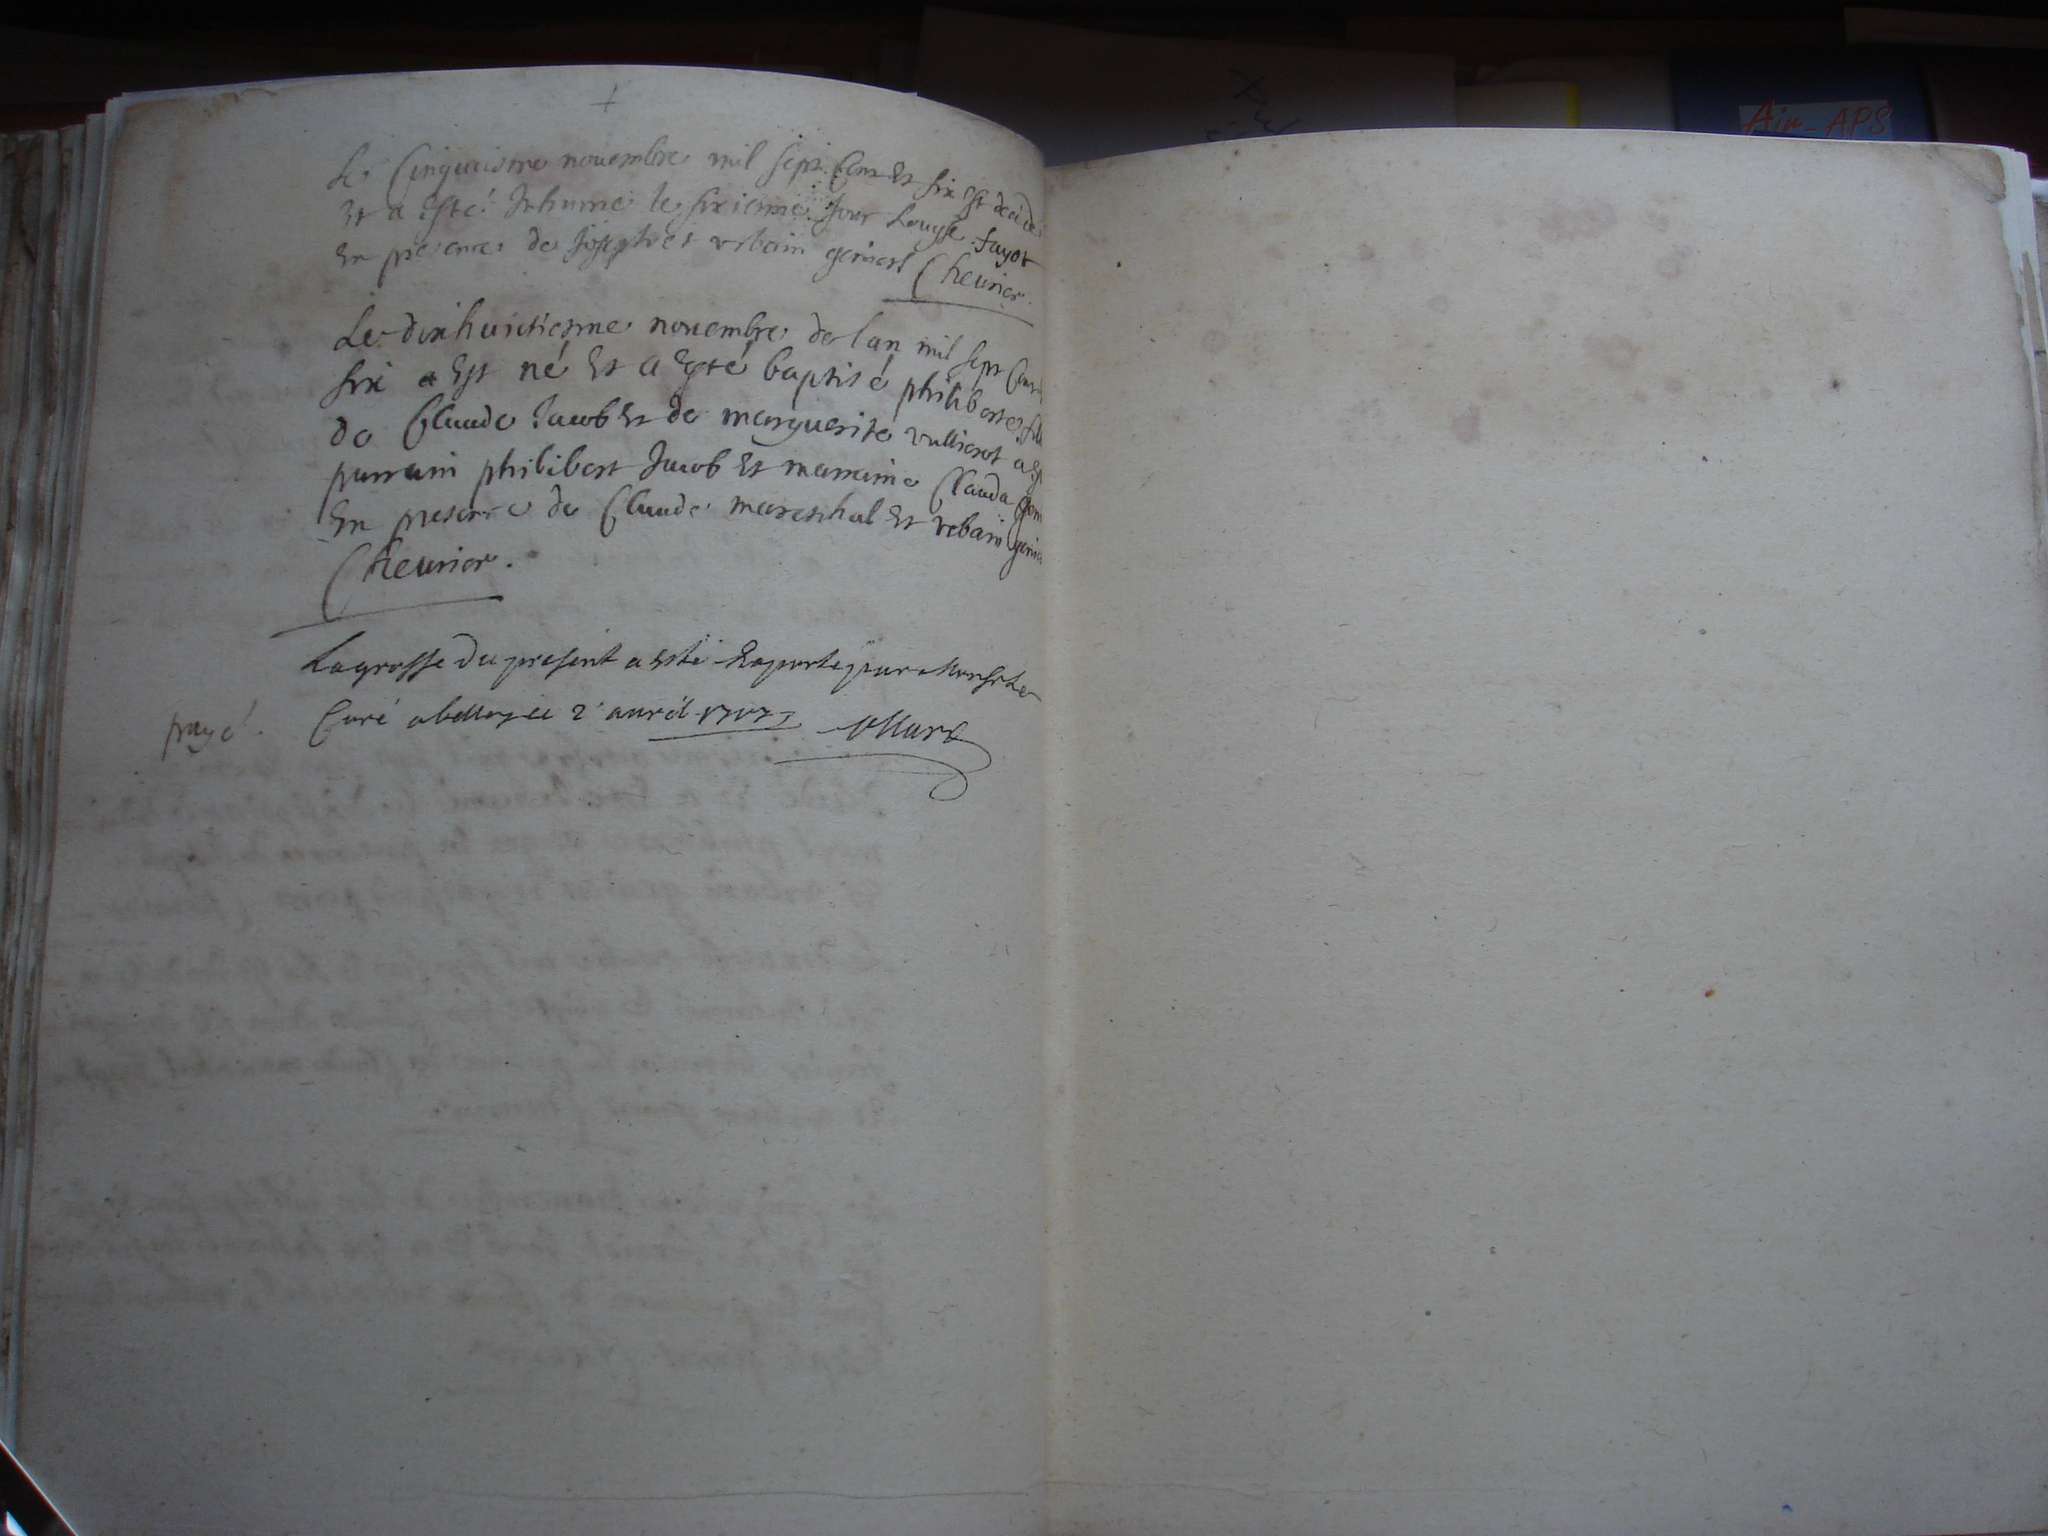 Le Cinquiesme novembre mil sept Cent Et six est decede
Et a esté Inhume le sixieme Jour Louyse fayot
En presence de Joseph et vrbain genieis Cheurier
Le dixhuictiesme novembre de lan mil sept Cent
six Est né Et a Esté baptisé philiberte fille
de Claude Jacob Et de marguerite vullierot a esté
parrain philibert Jacob Et marraine Clauda
En presence de Claude mareschal Et vrbain
Cheurier.
La grosse du present a esté Raporté par Monsr Le
payé. Curé a belley ce 2e auril 1707
Air-APS